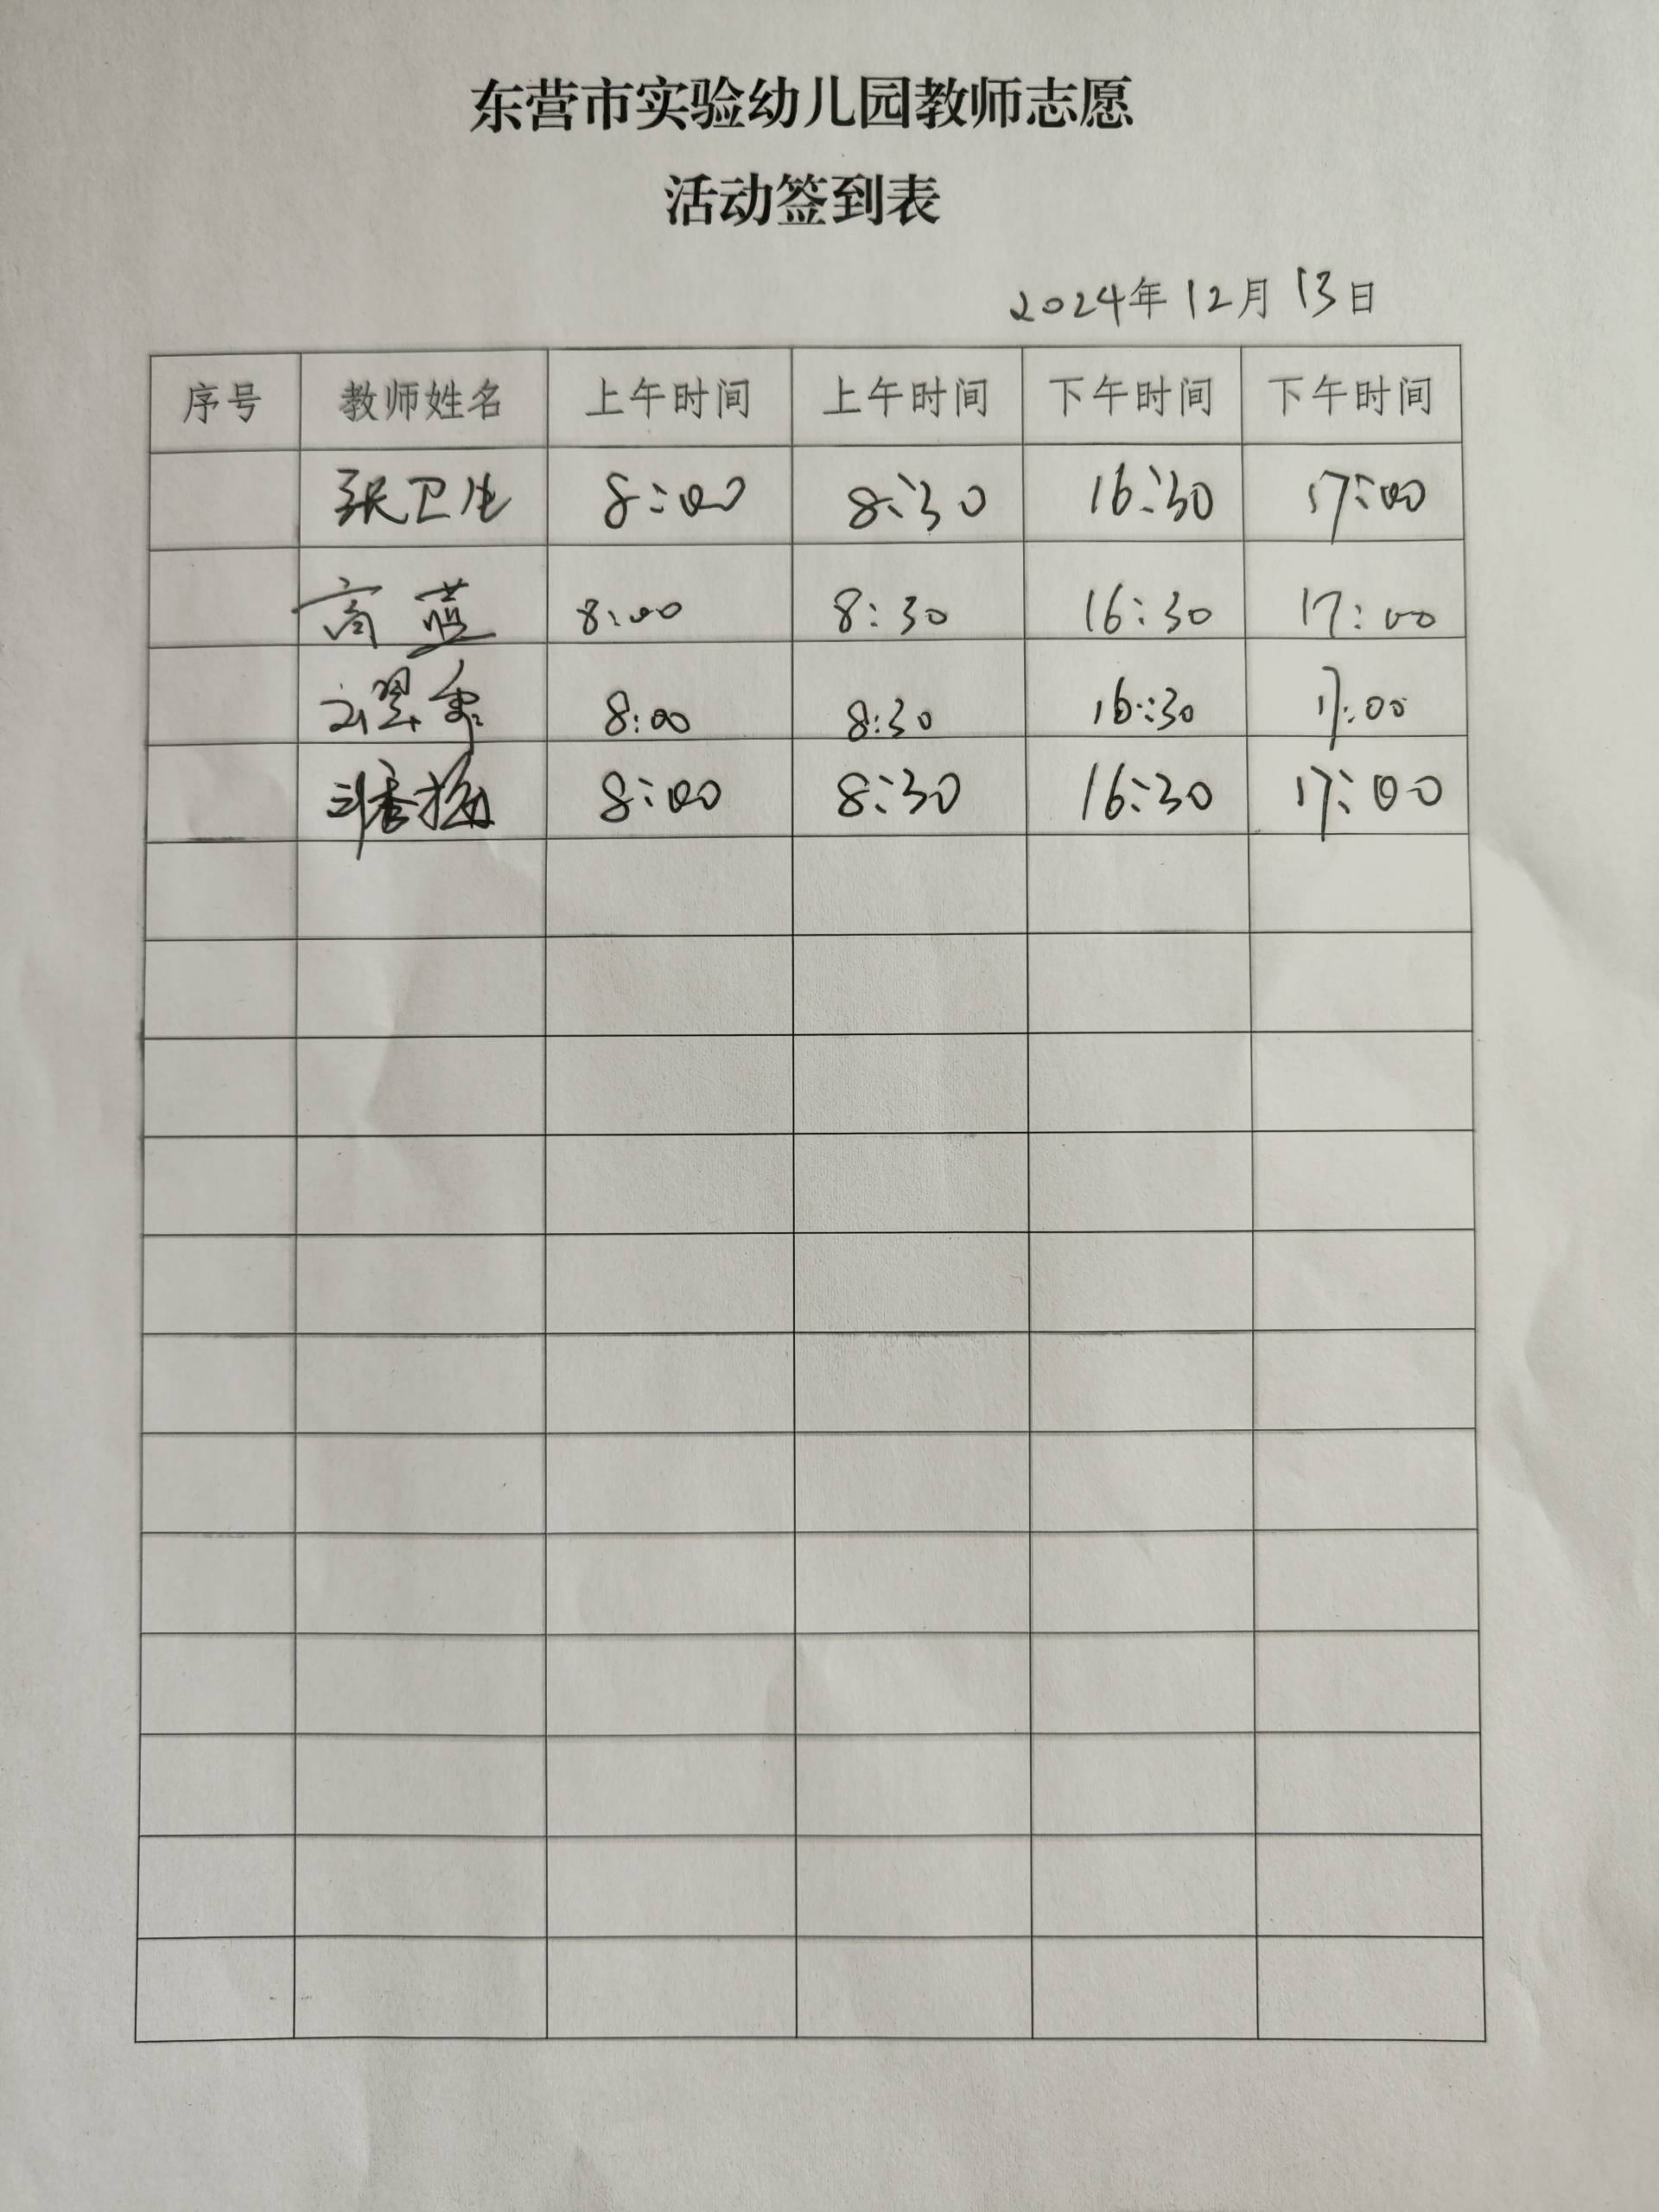 东营市实验幼儿园教师志愿
活动签到表
2024年12月13日
序号 教师姓名 上午时间 上午时间 下午时间 下午时间
张卫生 8:00 8:30 16:30 17:00
高蓝 8:00 8:30 16:30 17:00
8:00 8:30 16:30 17:00
8:00 8:30 16:30 17:00